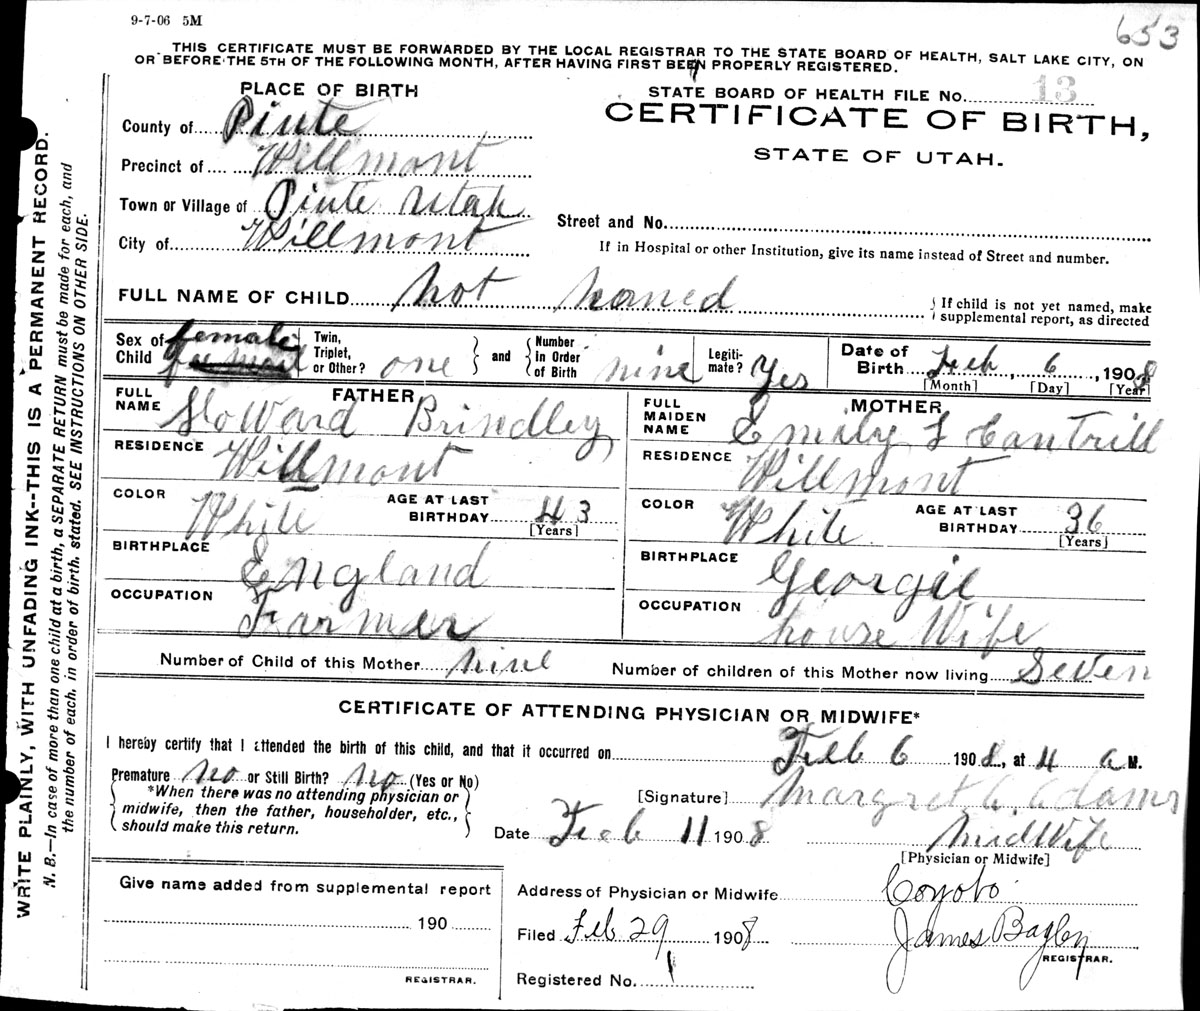 9-7-06 5M
653
THIS CERTIFICATE MUST BE FORWARDED BY THE LOCAL REGISTRAR TO THE STATE BOARD OF HEALTH, SALT LAKE CITY, ON
OR BEFORE THE 5TH OF THE FOLLOWING MONTH, AFTER HAVING FIRST BEEN PROPERLY REGISTERED.
PLACE OF BIRTH
STATE BOARD OF HEALTH FILE NO. 13
CERTIFICATE OF BIRTH,
STATE OF UTAH.
County of Piute
Precinct of Willmont
Town or Village of Piute Utah
City of Willmont
Street and No.
If in Hospital or other Institution, give its name instead of Street and number.
FULL NAME OF CHILD not named
If child is not yet named, make
supplemental report, as directed
Sex of Child female
Twin, Triplet, or Other? one
and
Number In Order of Birth nine
Legiti-mate? Yes
Date of Birth Feb 6, 1908
[Month] [Day] [Year]
FATHER
FULL NAME Howard Brindley
RESIDENCE Willmont
COLOR White
AGE AT LAST BIRTHDAY 43
[Years]
BIRTHPLACE England
OCCUPATION Farmer
MOTHER
FULL MAIDEN NAME Emily L Cantrill
RESIDENCE Willmont
COLOR White
AGE AT LAST BIRTHDAY 36
[Years]
BIRTHPLACE Georgie
OCCUPATION house Wife
Number of Child of this Mother nine
Number of children of this Mother now living Seven
CERTIFICATE OF ATTENDING PHYSICIAN OR MIDWIFE*
I hereby certify that I attended the birth of this child, and that it occurred on Feb 6 1908, at 4 a M.
Premature no or Still Birth? no (Yes or No)
*When there was no attending physician or
midwife, then the father, householder, etc.,
should make this return.
[Signature] Margret C Adams
Date Feb 11 1908
MidWife
[Physician or Midwife]
Give name added from supplemental report
190
REGISTRAR.
Address of Physician or Midwife Coyoto
Filed Feb 29 1908
James Bagley
REGISTRAR.
Registered No. 1
WRITE PLAINLY, WITH UNFADING INK--THIS IS A PERMANENT RECORD.
N. B.—In case of more than one child at a birth, a SEPARATE RETURN must be made for each, and
the number of each, in order of birth, stated. SEE INSTRUCTIONS ON OTHER SIDE.